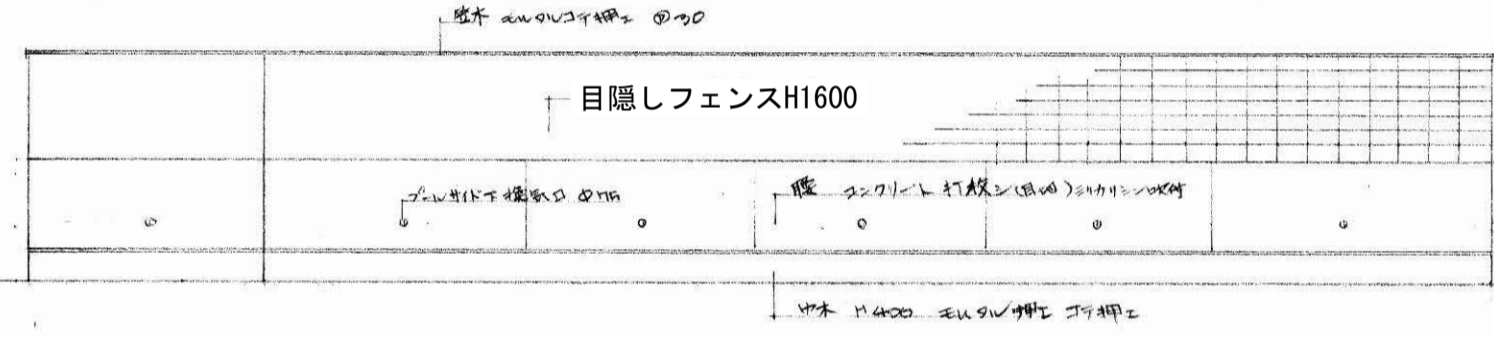 笠木 モルタルコテ押エ ⑦30
目隠しフェンスH1600
プールサイド下換気口 Φ75
腰 コンクリート打放シ(目地)シリカリシン吹付
巾木 H400 モルタル コテ押エ